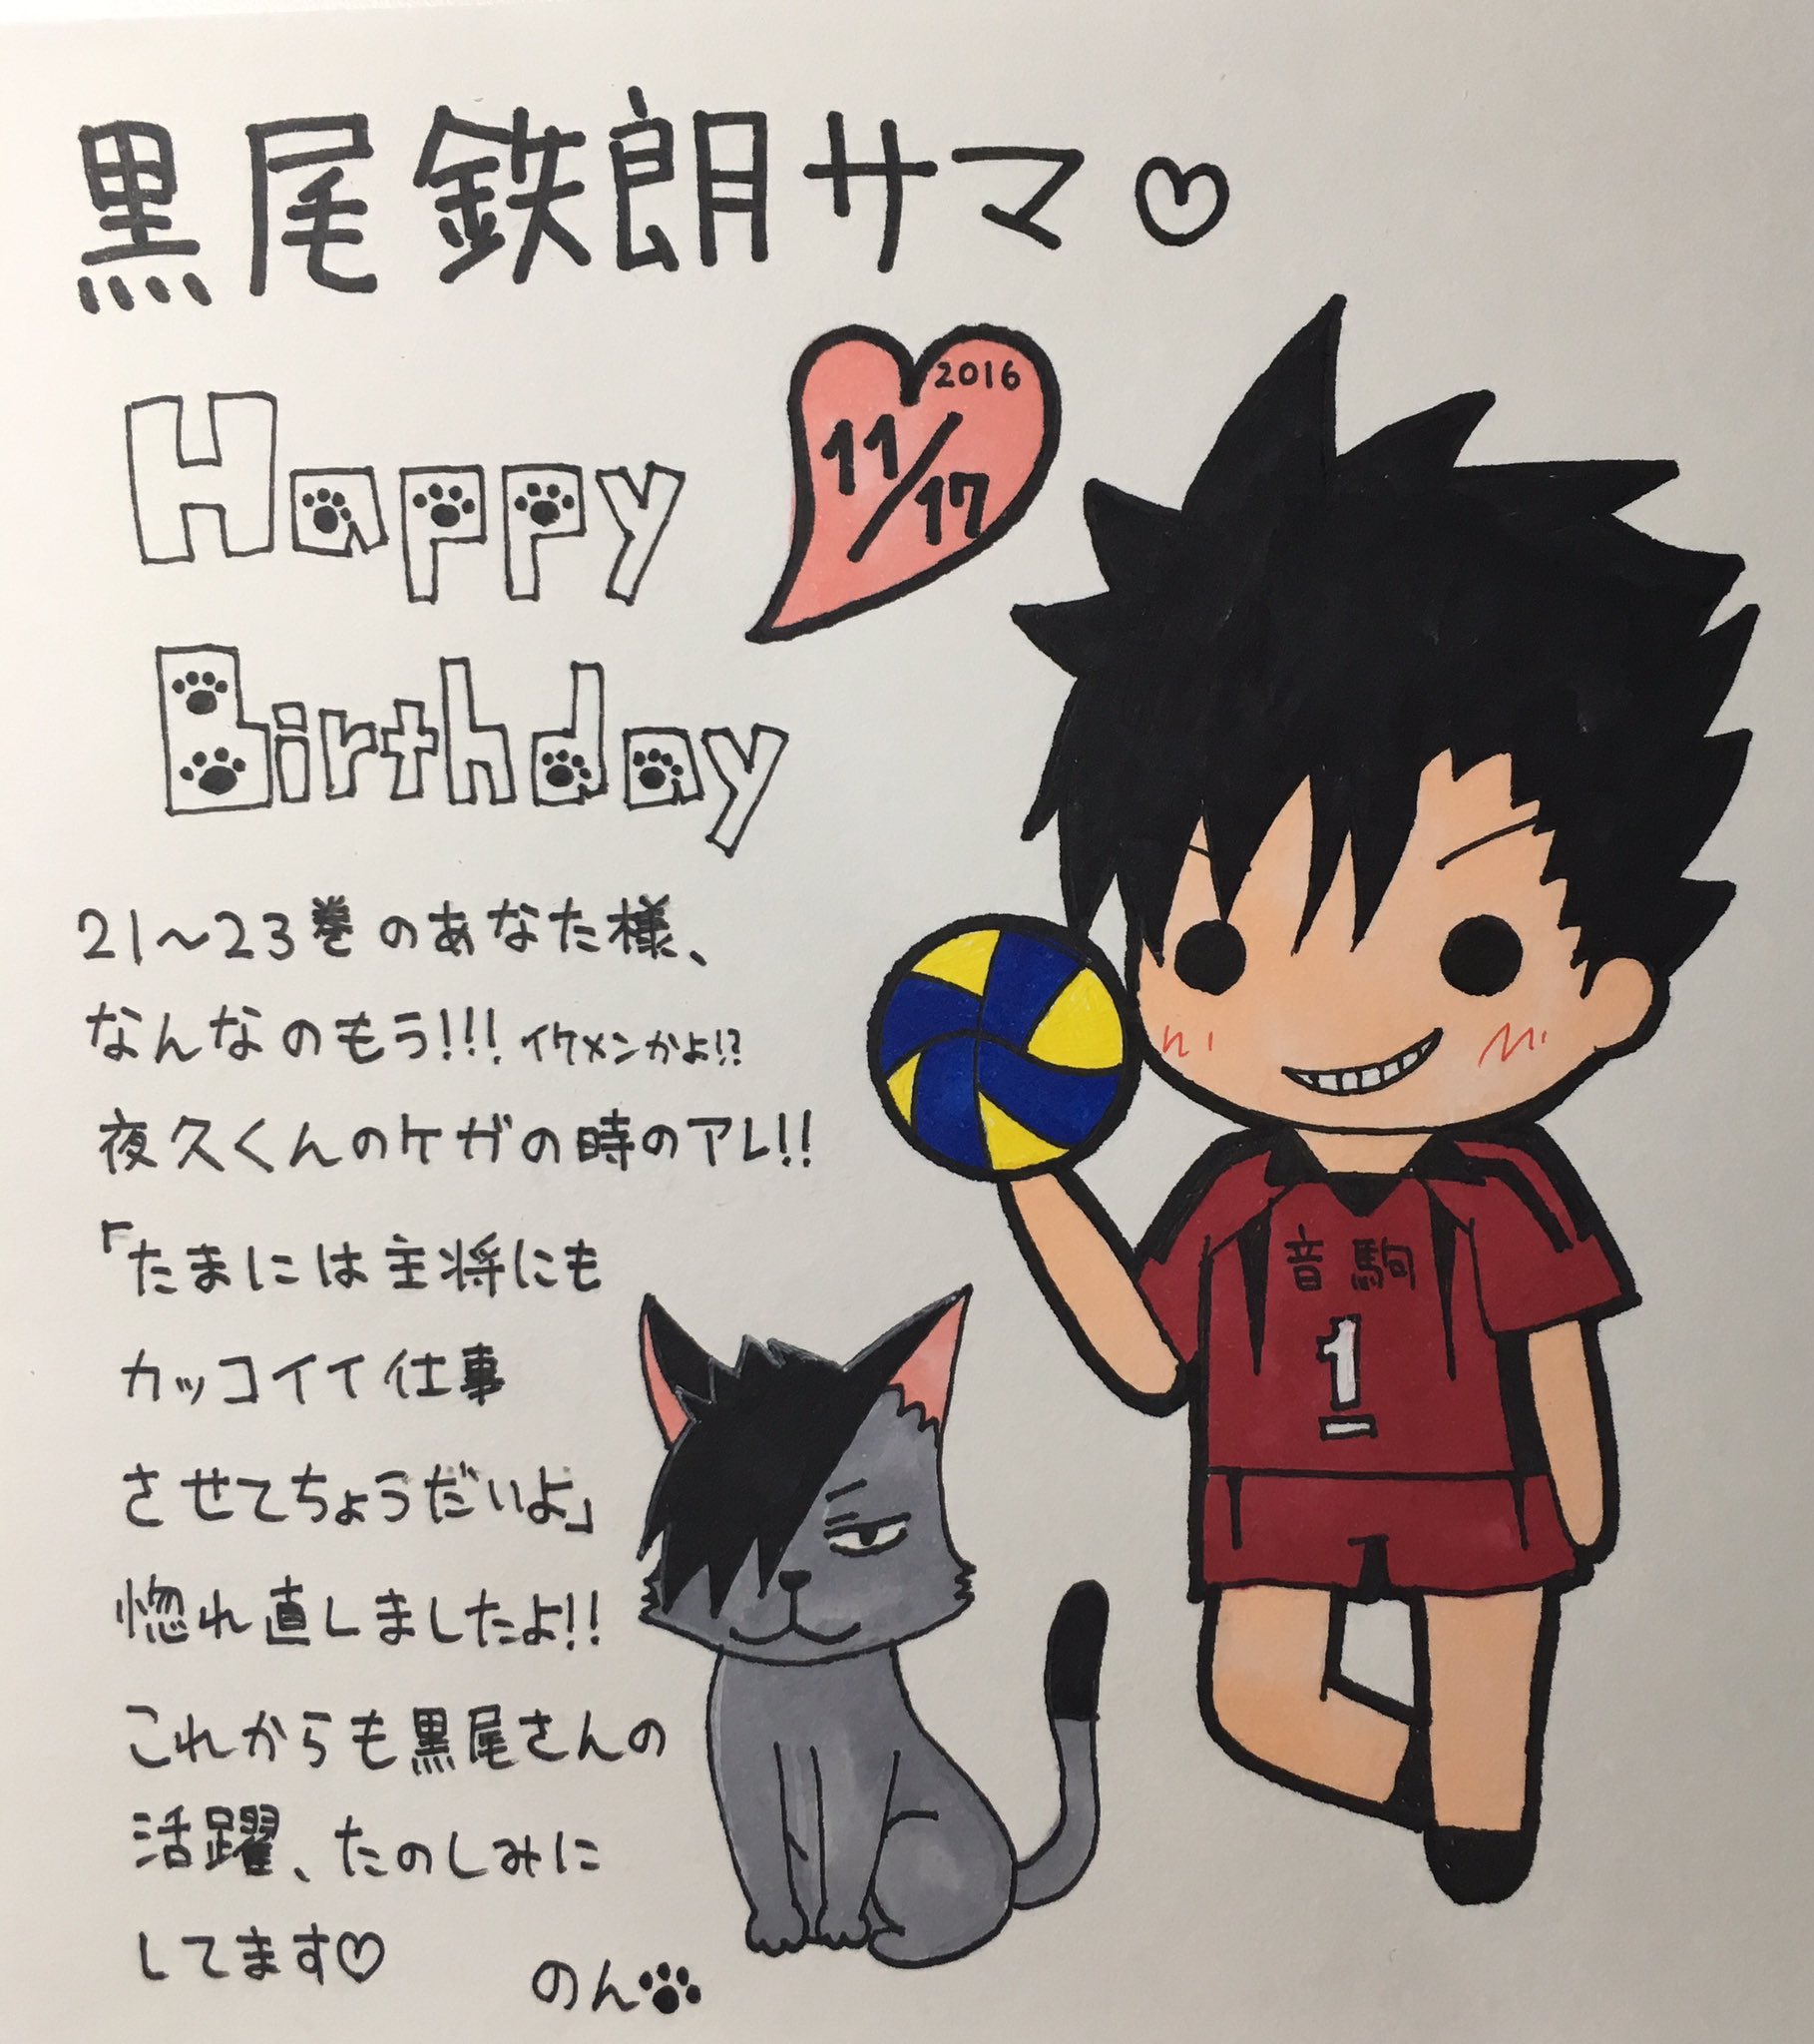 黒尾鉄朗サマ♡
2016
11/17
Happy
Birthday
21〜23巻のあなた様、
なんなのもう!!! イケメンかよ!?
夜久くんのケガの時のアレ!!
「たまには主将にも
カッコイイ仕事
させてちょうだいよ」
惚れ直しましたよ!!
これからも黒尾さんの
活躍、たのしみに
してます♡
のん
音駒
1